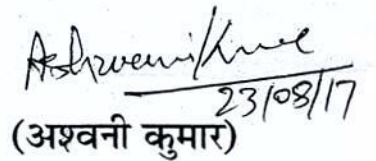 Ashwani Kumar
23/08/17
(अश्वनी कुमार)